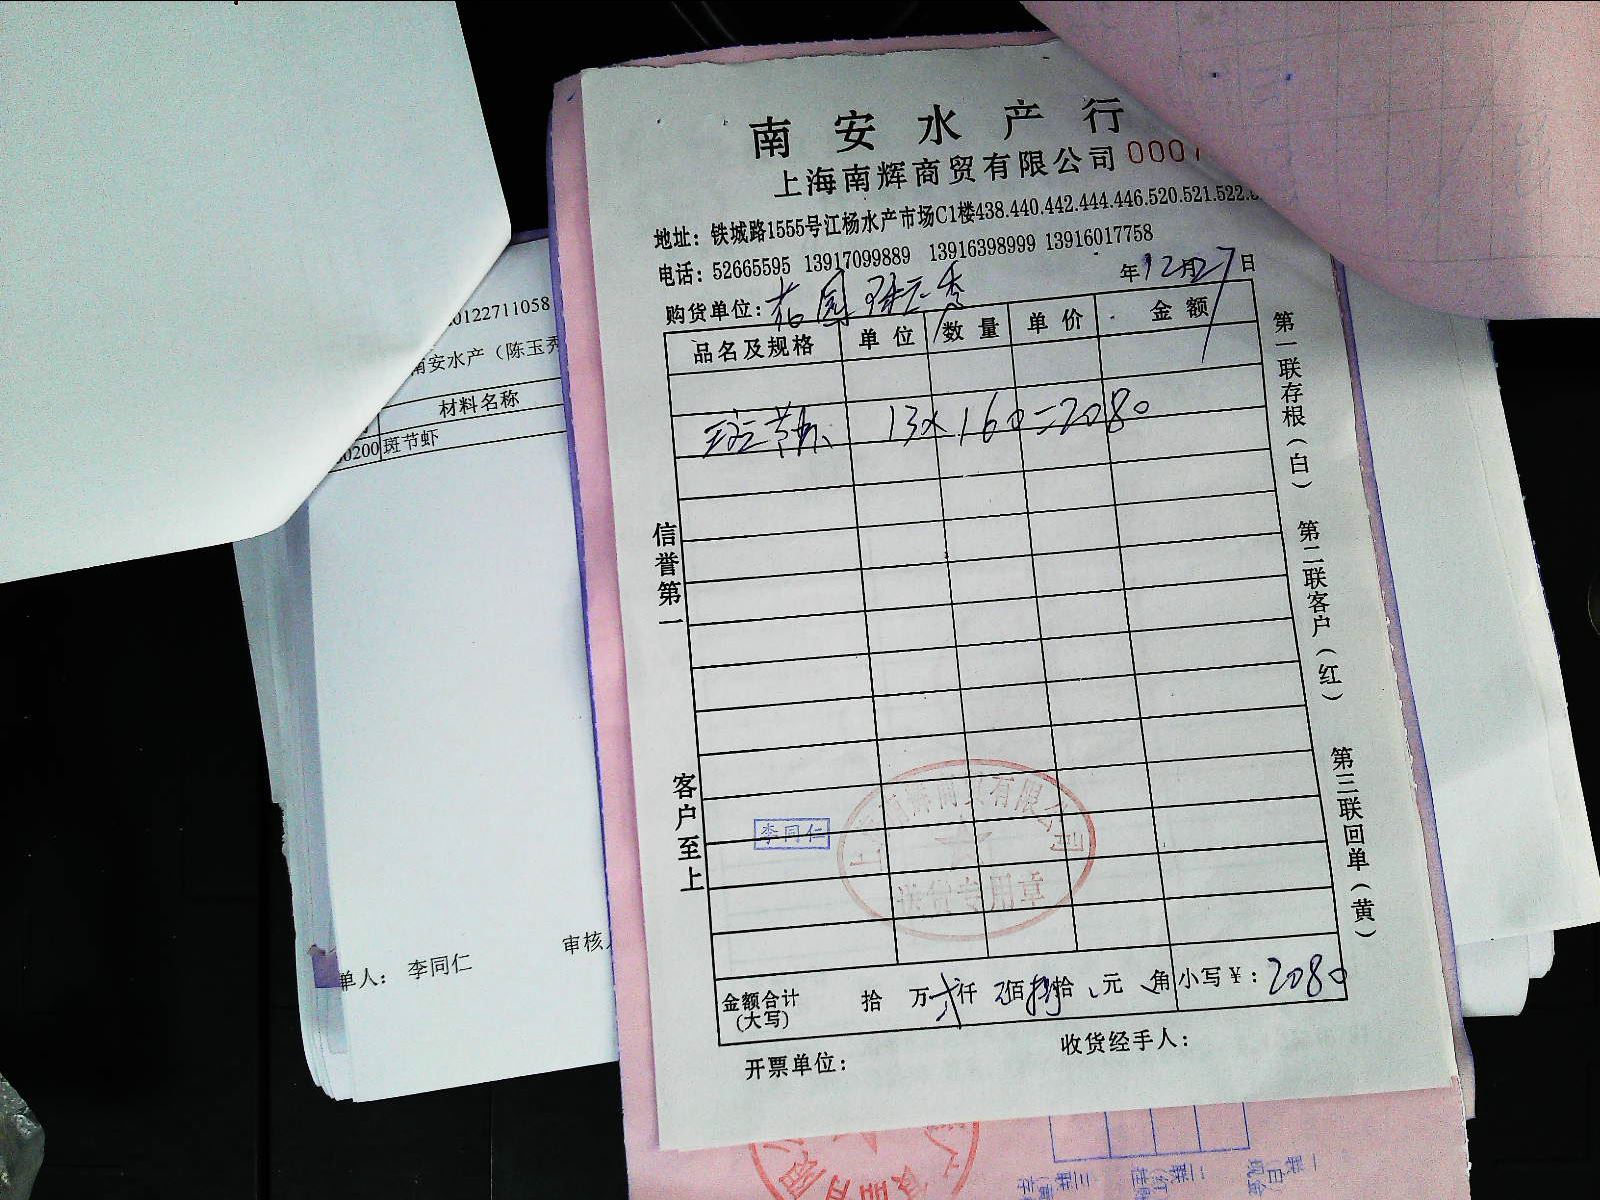 南安水产行
上海南辉商贸有限公司 0001
地址：铁城路1555号江杨水产市场C1楼438.440.442.444.446.520.521.522.
电话：52665595 13917099889 13916398999 13916017758
购货单位：花园 年12月27日
品名及规格 单位 数量 单价 金额
斑节虾 13×160=2080
信誉第一
客户至上
第一联存根（白）
第二联客户（红）
第三联回单（黄）
李同仁
南辉商贸有限公司
送货专用章
金额合计 拾 万 贰仟 佰 捌拾 元 角 小写￥：2080
(大写)
开票单位： 收货经手人：
0122711058
南安水产（陈玉秀
材料名称
0200 斑节虾
单人： 李同仁 审核